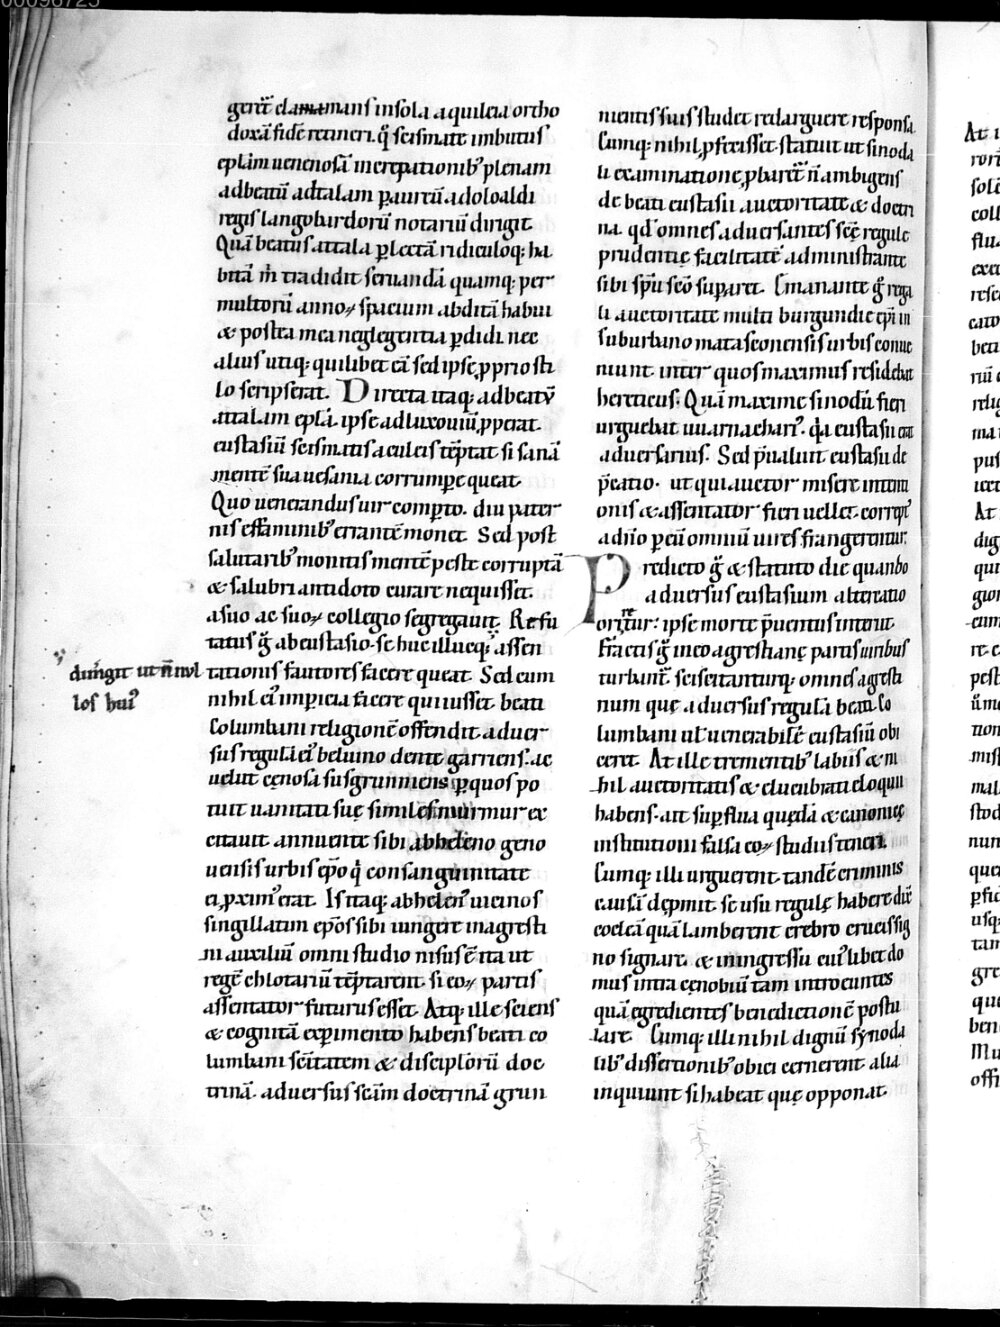 geret̅ clamamans in sola aquileia ortho
doxā fidē retineri. q̊ scismate imbutus
eplām uenenosā increpationib; plenam
ad beatū adtalam p aureū adoloaldi
regis langobardorū notariū dirigit.
Quā beatus attala plectā ridiculoq; ha
bitā m̊ tradidit seruandā quamq; per
multorū annoꝝ spacium abditā habui
& postea mea neglegentia pdidi nec
alius utiq; quilibet eā sed ipse pprio sti
lo scripserat. Directa itaq; ad beatū
attalam eplā. ipse ad luxouiū pperat.
eustasiū scismatis aculeis tēptat si sanā
mentē sua uesania corrumpe queat.
Quo uenerandus uir compto. diu pater
nis effaminib; errantē monet. Sed post
salutarib; monitis mentē peste corruptā
& salubri antidoto curare nequisset.
a suo ac suoꝝ collegio segregauit. Refu
tatus g̊ ab eustasio. se huc illucq; assen
dirigit ut n̄ nul
los hui᾽
tationis fautores facere queat. Sed cum
nihil ei impicia facere quiuisset. beati
Columbani religionē offendit. aduer
sus regulā ei᾽ beluino dente garriens. ac
uelut cęnosa sus grunniens p quos po
tuit uanitati suę similes murmur ex
citauit. annuente sibi abheleno geno
uensis urbis ep̄o q̊ consanguinitate
ei pxim᾽ erat. Is itaq; abhelen᾽ uicinos
singillatim ep̄os sibi iungere in agresti
ni auxiliū omni studio nisus ē ita ut
regē chlotariū tēptarent. si eoꝝ partis
assentator futurus esset. Atq; ille sciens
& cognitā expimento habens beati co
lumbani sc̄itatem & disciplorū doc
trinā. aduersus sc̄am doctrinā grun
nientis suis studet redarguere responsa.
Cumq; nihil pfecisset. statuit ut sinoda
li examinatione pbaret̅ n̄ ambigens
de beati eustasii auctoritate & doctri
na. qd̓ omnes aduersantes sc̄ę regule
prudentię facilitate administrante
sibi sp̄u sc̄o suparet. Emanante g̊ rega
li auctoritate multi burgundie ep̄i in
suburbano matasconensis urbis conue
niunt. inter quos maximus residebat
hereticus. Quā maxime sinodū fieri
urguebat uuarnachari᾽. q̊a eustasii erat
aduersarius. Sed p̄ualuit eustasii de
p̄catio. ut qui auctor misere intenti
onis & assentator fieri uellet. corrept᾽
a dn̄o p eū omniū uires frangerentur.
Predicto g̊ & statuto die quando
aduersus eustasium altercatio
oriretur. ipse morte p̄uentus interiit.
Fractis g̊ in eo agrestianę partis uiribus
turbant̅. sciscitanturq; omnes agresti
num que aduersus regulā beati Co
lumbani ut uenerabilē eustasiū obi
ceret. At ille trementib; labiis & ni
hil auctoritatis & elucubrati eloquii
habens. ait supflua quędā & canonicę
institutioni falsa eoꝝ studiis teneri.
Cumq; illi urguerent. tandē criminis
causā depmit. se usu regulę habere dic̄
coclcā quā lamberent crebro crucis sig
no signare. & in ingressu cui᾽libet do
mus intra cęnobiū tam introeuntes
quā egredientes benedictionē postu
lare. Cumq; illi nihil dignū synoda
lib; dissertionib; obici cernerent. alia
inquiunt si habeat quę opponat.